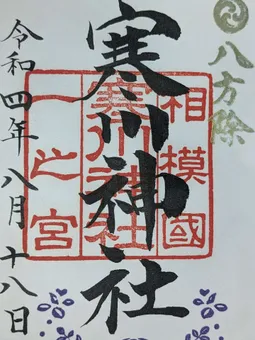 八方除
相模國
寒川神社
一之宮
寒川神社
令和四年八月十八日